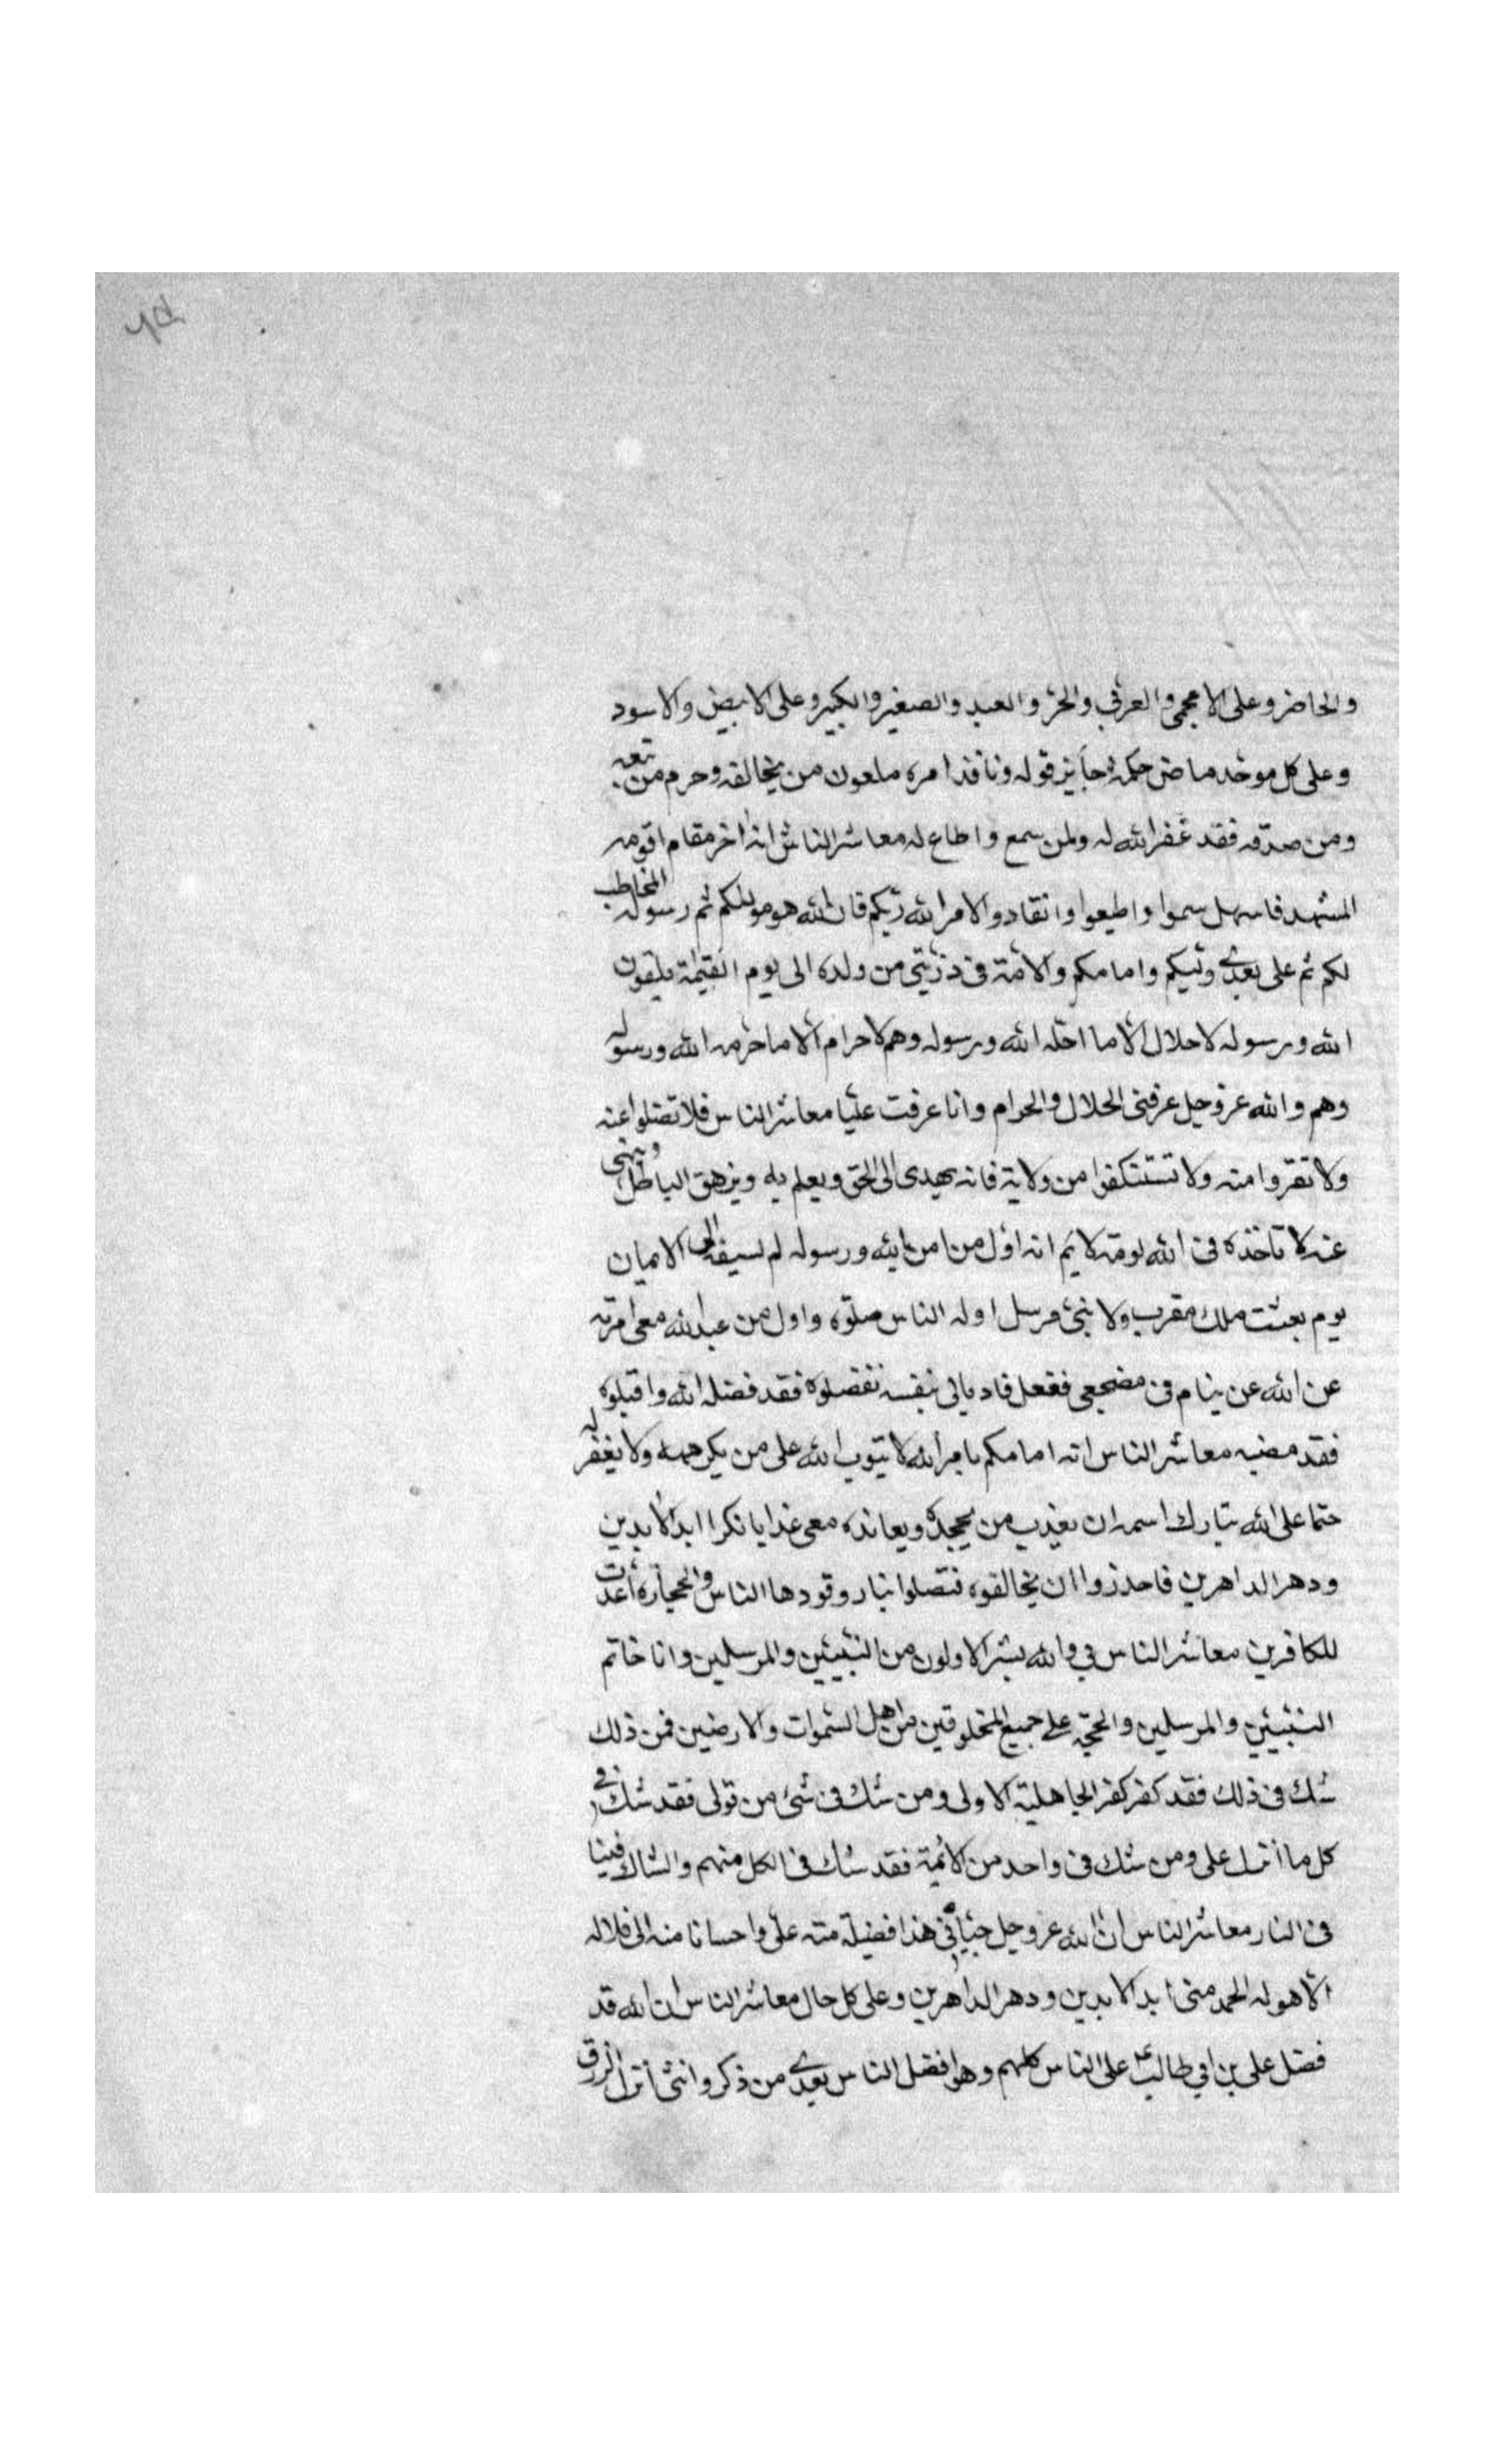 والحاضر وعلى الاعجمى والعربى والحر والعبد والصغير والكبير وعلى الابيض والاسود
وعلى كل موحد ماض حكمه جايز قوله ونافذ امره ملعون من يخالفه وحرم من تبعه
ومن صدقه فقد غفر الله له ولمن سمع واطاع له معاشر الناس انه اخر مقام اقومه
المشهد فا سموا واطيعوا وانقادوا لامر الله ربكم فان الله هو موليكم ثم رسوله المخاطب
لكم ثم على بعدى وليكم وامامكم والائمة فى ذريتى من ولده الى يوم القيمة يلقون
الله ورسوله لا حلال الا ما احله الله ورسوله وهم لا حرام الا ما حرمه الله ورسوله
وهم والله عز وجل عرفنى الحلال والحرام وانا عرفت عليا معاشر الناس فلا تضلوا عنه
ولا تقروا منه ولا تستنكفوا من ولاية فانه يهدى الى الحق ويعلم به ويزهق الباطل وينهى
عنه لا تاخذه فى الله لومة لايم انه اول من امن بالله ورسوله لم لسيفه الى الامان
يوم بعثت ملك مقرب ولا نبى مرسل اوله الناس صلوة واول من عبد الله معى امرته
عن الله عن ينام فى مضجعى ففعل فاديا لى بنفسه نفضلوه فقد فضله الله واقبلوه
فقد مضبه معاشر الناس انه امامكم بامر الله لا يتوب الله على من يكرهه ولا يغفر له
حتما على الله تبارك اسمه ان يعذب من يجحده ويعانده معى عذابا نكرا ابد الابدين
ودهر الداهرين فاحذروا ان يخالفوه فتصلوا بنار وقودها الناس والحجارة اعدت
للكافرين معاشر الناس بى والله بشر الاولون من النبيين والمرسلين وانا خاتم
النبيين والمرسلين والحجة على جميع المخلوقين من اهل السموات والارضين فمن ذلك
شك فى ذلك فقد كفر كفر الجاهلية الاولى ومن شك فى شئ من قولى فقد شك فى
كل ما انزل على ومن شك فى واحد من الائمة فقد شك فى الكل منهم والشاك فينا
فى النار معاشر الناس ان الله عز وجل حبانى هذا فضيلة منه على واحسانا منه الى فلا اله
الا هو له الحمد منى ابد الابدين ودهر الداهرين وعلى كل حال معاشر الناس ان الله قد
فضل على بن ابى طالب ع على الناس كلهم وهو افضل الناس بعدى من ذكر وانثى انزل الرزق